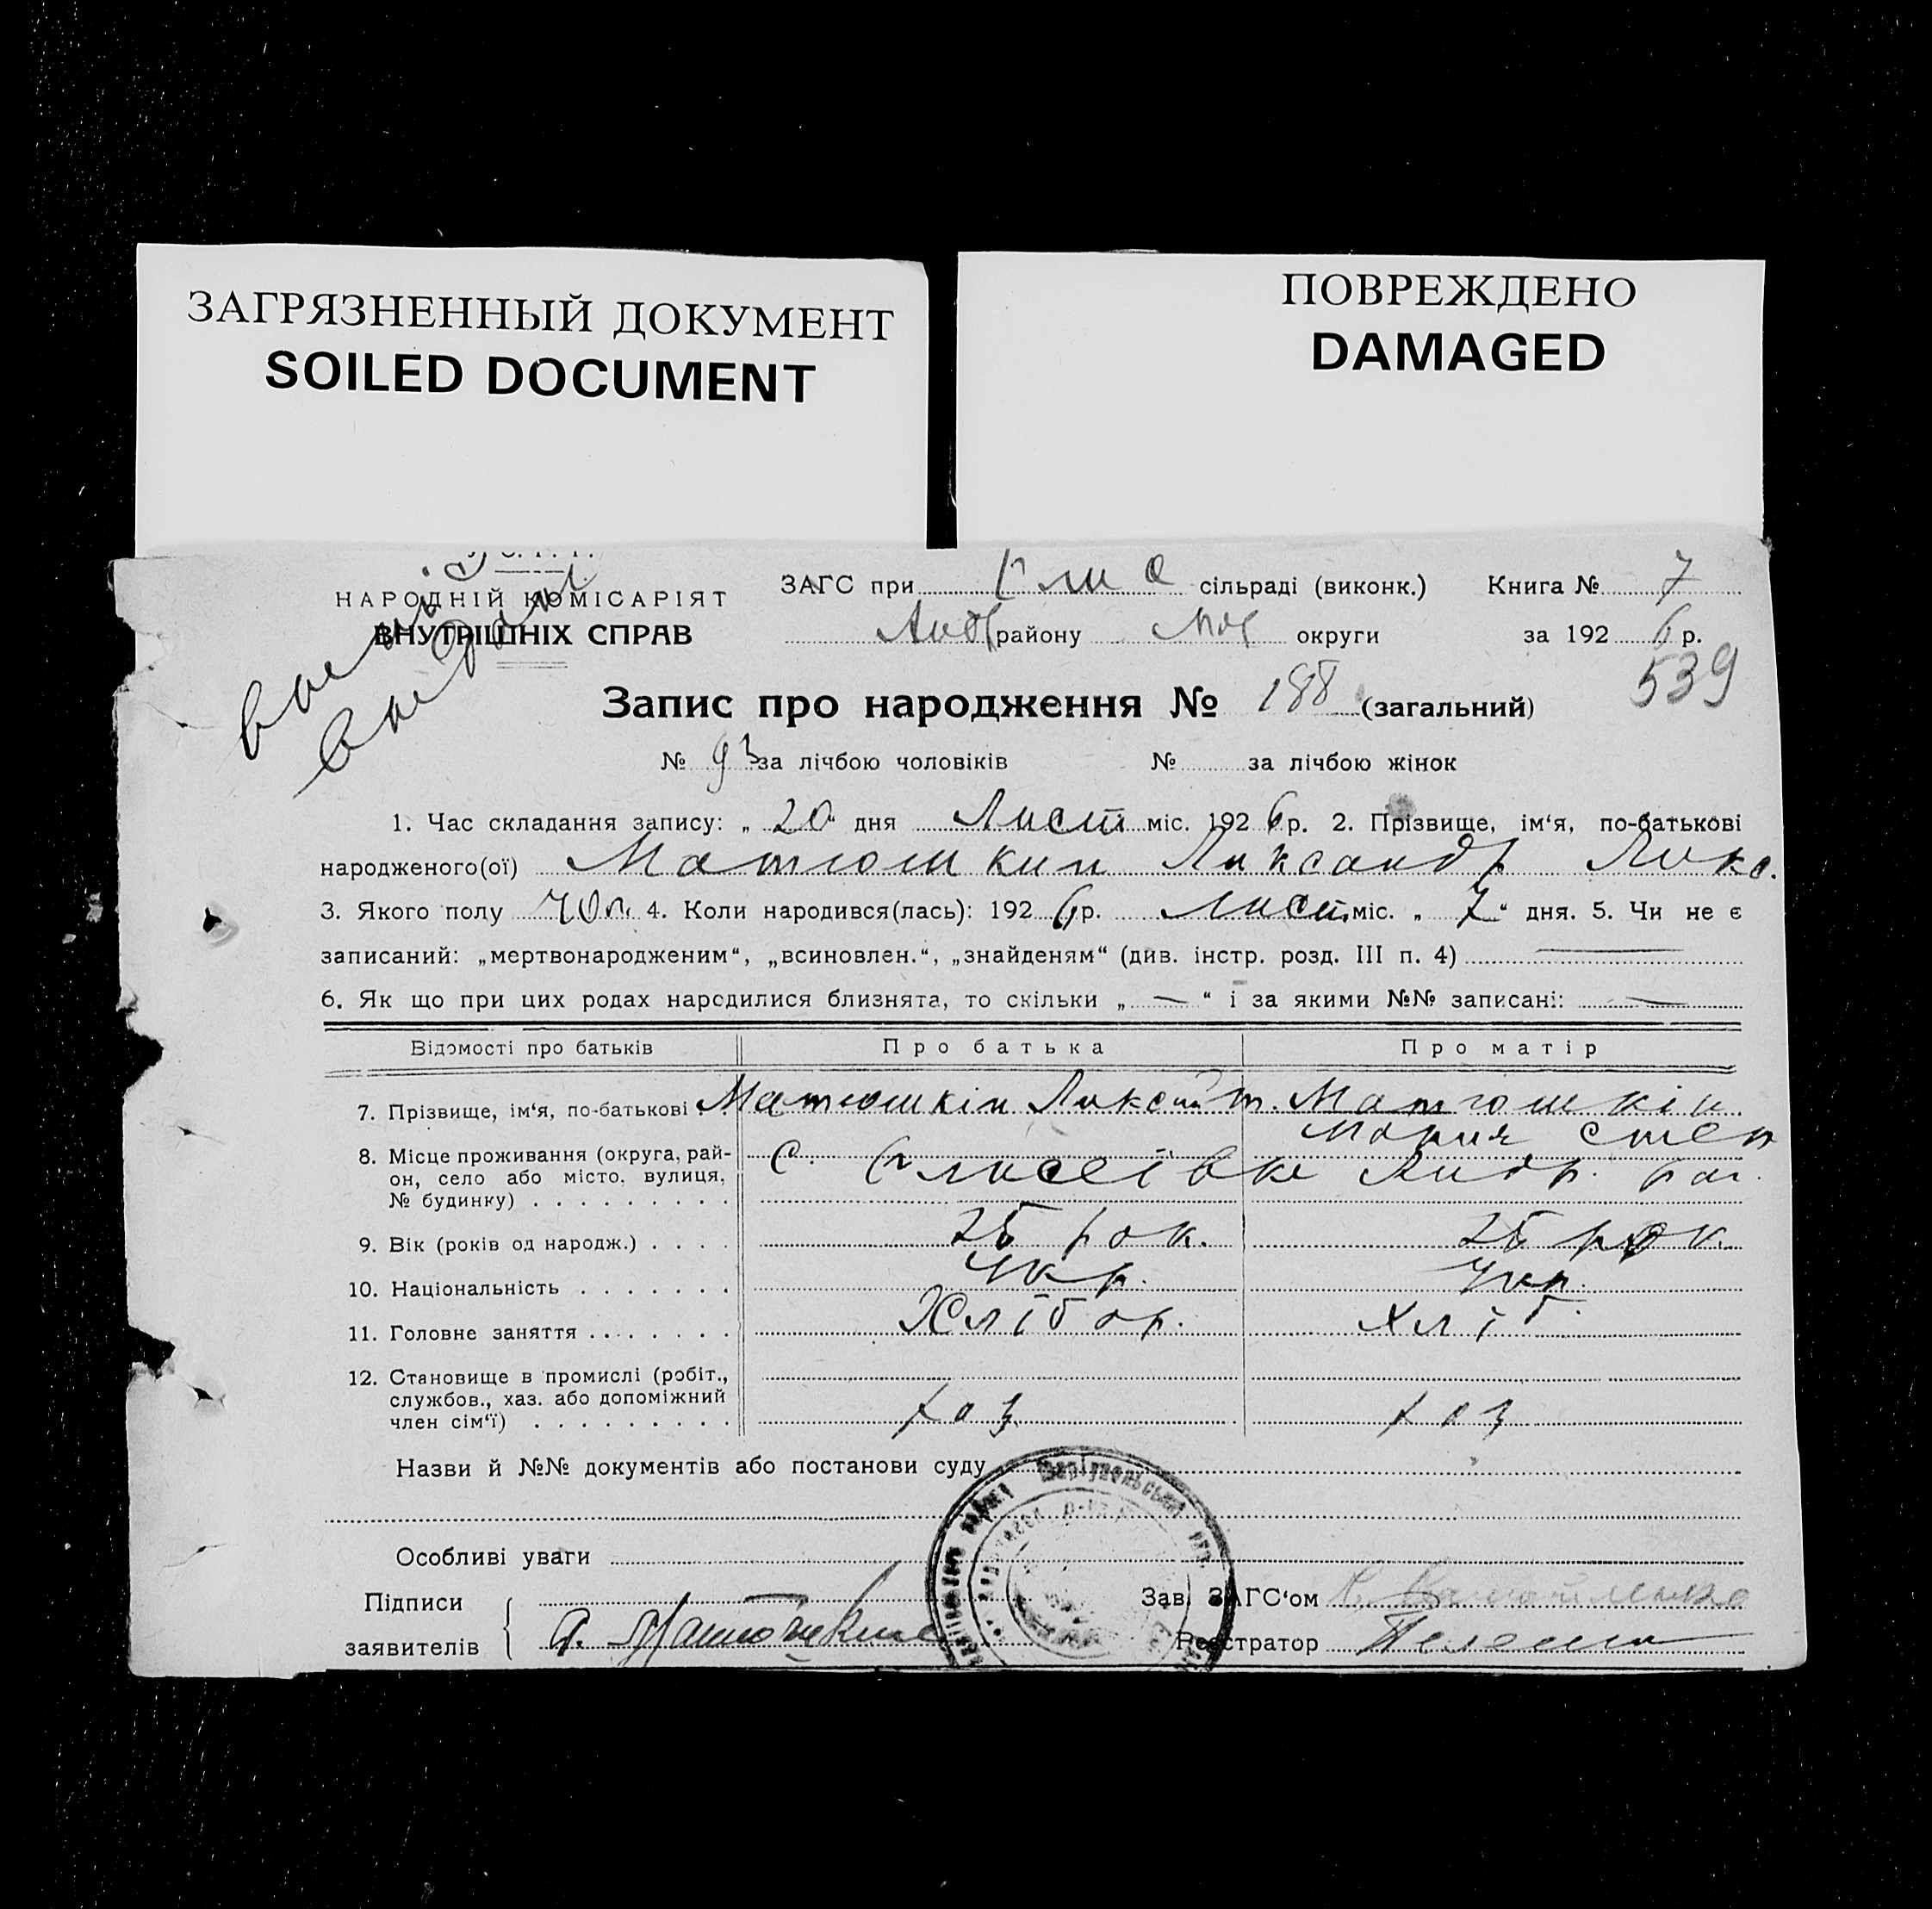 ЗАГРЯЗНЕННЫЙ ДОКУМЕНТ
SOILED DOCUMENT
ПОВРЕЖДЕНО
DAMAGED
НАРОДНІЙ КОМІСАРІЯТ
ВНУТРІШНІХ СПРАВ
ЗАГС при сільраді (виконк.) Книга № 7
району округи за 1926 р.
539
Запис про народження № 188 (загальний)
№ 93 за лічбою чоловіків № за лічбою жінок
1. Час складання запису: „ 20 “ дня Лист міс. 1926 р. 2. Прізвище, ім‘я, по-батькові
народженого(ої) Матюшкин Александр
3. Якого полу чол. 4. Коли народився(лась): 1926 р. Лист. міс. „ 7 “ дня. 5. Чи не є
записаний: „мертвонародженим“, „всиновлен.“, „знайденям“ (див. інстр. розд. III п. 4) —
6. Як що при цих родах народилися близнята, то скільки „ — “ і за якими №№ записані: —
Відомості про батьків Про батька Про матір
7. Прізвище, ім‘я, по-батькові . Матюшкін Матюшкін
Мария Степ
8. Місце проживання (округа, рай-
он, село або місто, вулиця,
№ будинку) . . . . . . . . . С. Андр. рай.
9. Вік (років од народж.) . . . . 25 рок. 25 рок.
10. Національність . . . . . . . Укр. Укр.
11. Головне заняття . . . . . . . Хлібор. Хліб.
12. Становище в промислі (робіт.,
службов., хаз. або допоміжний
член сім‘ї) . . . . . . . . . хоз. хоз
Назви й №№ документів або постанови суду
Особливі уваги
Підписи
заявителів
Зав. ЗАГС‘ом
Реєстратор